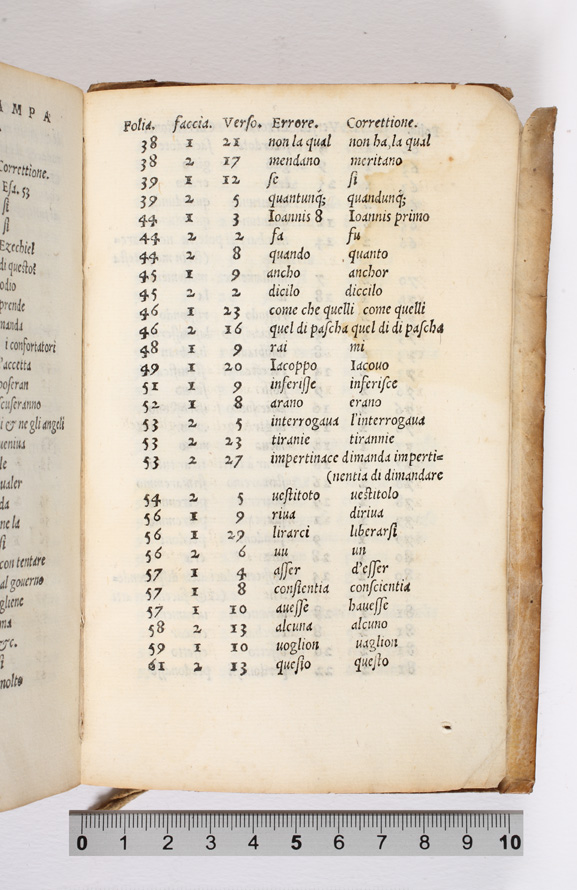 AMPA
Correttione.
Esa. 53
si
si
Ezechiel
di questo?
odio
prende
manda
i confortatori
l'accetta
poseran
scuseranno
i & ne gli angeli
uenius
le
ualer
da
ne la
si
con tentare
al gouerno
gliene
ma
&c.
si
molto
Folia. faccia. Verso. Errore. Correttione.
38 1 21 non la qual non ha, la qual
38 2 17 mendano meritano
39 1 12 se si
39 2 5 quantunq; quandunq;
44 1 3 Ioannis 8 Ioannis primo
44 2 2 fa fu
44 2 8 quando quanto
45 1 9 ancho anchor
45 2 2 dicilo diccilo
46 1 23 come che quelli come quelli
46 2 16 quel di pascha quel di di pascha
48 1 9 rai mi
49 1 20 Iacoppo Iacouo
51 1 9 inserisse inserisce
52 1 8 arano erano
53 2 5 interrogaua l'interrogaua
53 2 23 tiranie tirannie
53 2 27 impertinace dimanda imperti=
(nentia di dimandare
54 2 5 uestitoto uestitolo
56 1 9 riua diriua
56 1 29 lirarci liberarsi
56 2 6 uu un
57 1 4 asser d'esser
57 1 8 constientia conscientia
57 1 10 auesse hauesse
58 2 13 alcuna alcuno
59 1 10 uoglion uaglion
61 2 13 questo questo
0 1 2 3 4 5 6 7 8 9 10